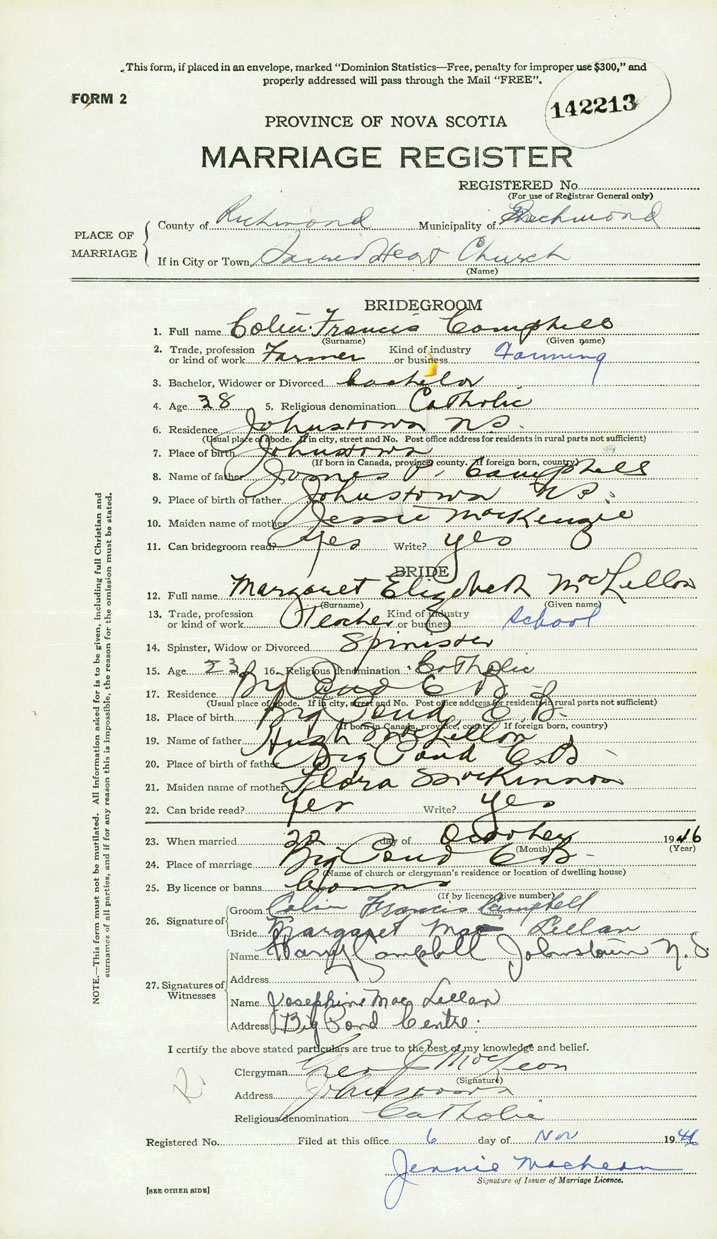 This form, if placed in an envelope, marked "Dominion Statistics—Free, penalty for improper use $300," and
properly addressed will pass through the Mail "FREE".
FORM 2
142213
PROVINCE OF NOVA SCOTIA
MARRIAGE REGISTER
REGISTERED No.
(For use of Registrar General only)
PLACE OF MARRIAGE
County of Richmond Municipality of Richmond
If in City or Town Sacred Heart Church
(Name)
BRIDEGROOM
1. Full name Colin Francis Campbell
(Surname) (Given name)
2. Trade, profession or kind of work Farmer Kind of industry or business Farming
3. Bachelor, Widower or Divorced bachelor
4. Age 38 5. Religious denomination Catholic
6. Residence Johnstown N.S.
(Usual place of abode. If in city, street and No. Post office address for residents in rural parts not sufficient)
7. Place of birth Johnstown
(If born in Canada, province, county. If foreign born, country)
8. Name of father James Campbell
9. Place of birth of father Johnstown N.S.
10. Maiden name of mother Jessie MacKenzie
11. Can bridegroom read? yes Write? yes
BRIDE
12. Full name Margaret Elizabeth MacLellan
(Surname) (Given name)
13. Trade, profession or kind of work Teacher Kind of industry or business School
14. Spinster, Widow or Divorced Spinister
15. Age 23 16. Religious denomination Catholic
17. Residence Big Pond C B.
(Usual place of abode. If in city, street and No. Post office address for residents in rural parts not sufficient)
18. Place of birth Big Pond C. B.
(If born in Canada, province, county. If foreign born, country)
19. Name of father Hugh MacLellan
20. Place of birth of father Big Pond C.B.
21. Maiden name of mother Flora MacKinnon
22. Can bride read? yes Write? yes
23. When married 30 day of October 1946
(Month) (Year)
24. Place of marriage Big Pond C B.
(Name of church or clergyman's residence or location of dwelling house)
25. By licence or banns banns
(If by licence give number)
26. Signature of Groom Colin Francis Campbell
Bride Margaret Mac Lellan
27. Signatures of Witnesses
Name Harry Campbell Johnstown N.S
Address
Name Josephine Mac Lellan
Address Big Pond Centre.
I certify the above stated particulars are true to the best of my knowledge and belief.
Clergyman J MacLeon
(Signature)
Address Johnstown
Religious denomination Catholic
Registered No. Filed at this office 6 day of Nov 1946
Jennie MacLean
Signature of Issuer of Marriage Licence.
[SEE OTHER SIDE]
NOTE.—This form must not be mutilated. All information asked for is to be given, including full Christian and
surnames of all parties, and if for any reason this is impossible, the reason for the omission must be stated.